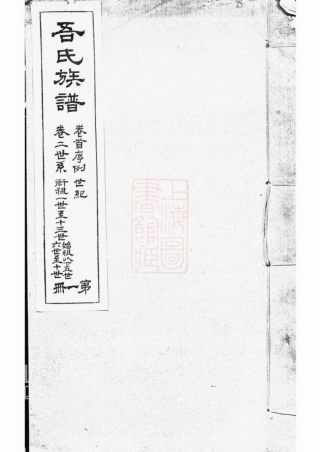 吾氏族譜
卷首序例 世紀
卷二世系 衍祖一世至十三世
始祖以五世
六世至十世
第一冊
上海圖書館藏